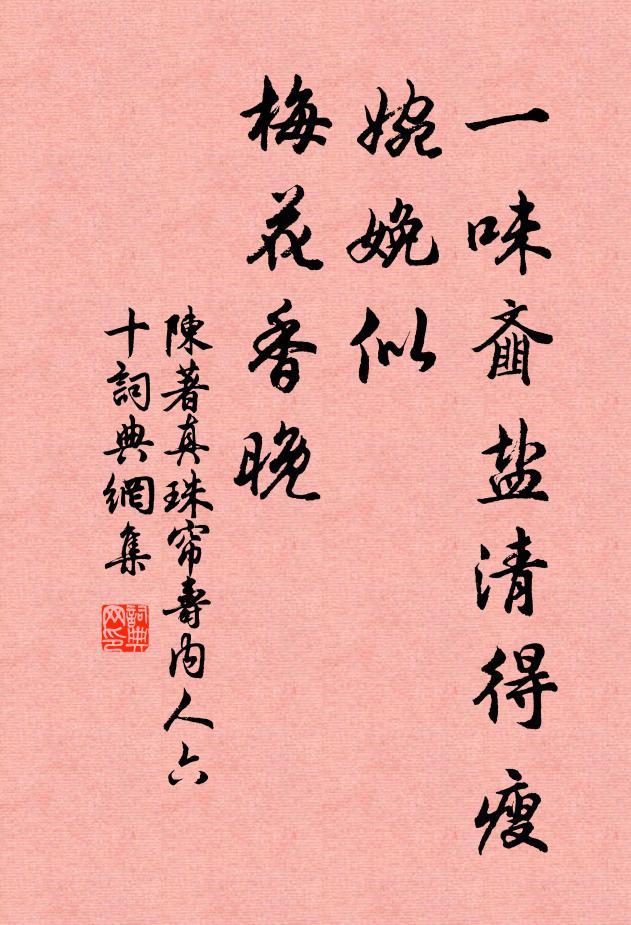 一味齑盐清得瘦
婉娩似
梅花香晚
陳著真珠帘壽内人六
十詞典網集
詞典網印